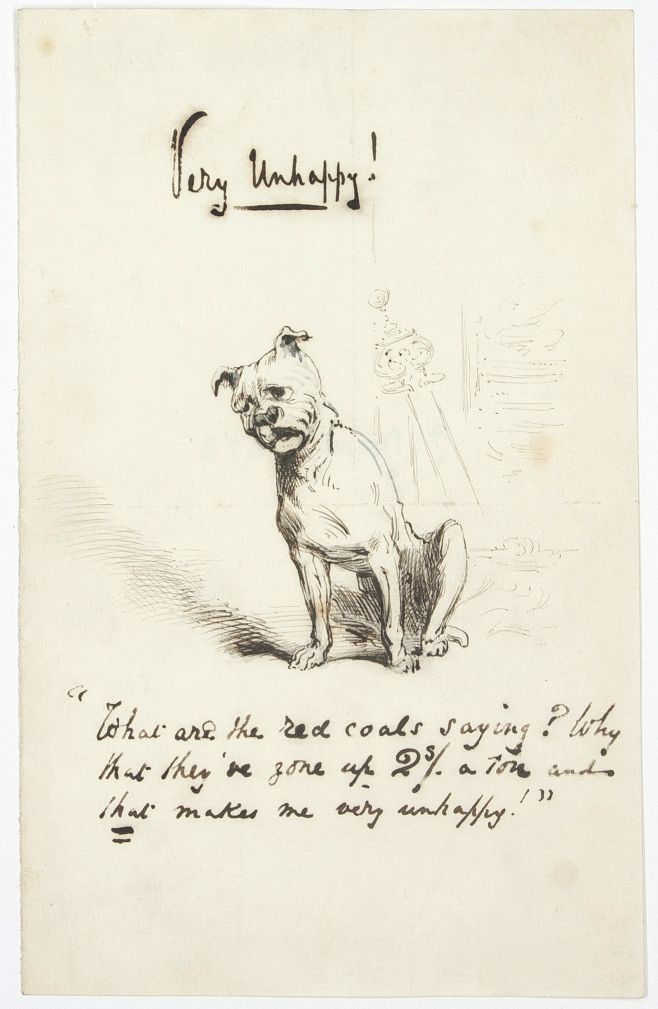 Very Unhappy!
"What are the red coals saying? Why
that they've gone up 2s/. a ton and
that makes me very unhappy!"